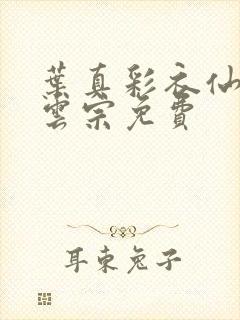 葉真彩衣仙
雲宗免費
耳東兔子